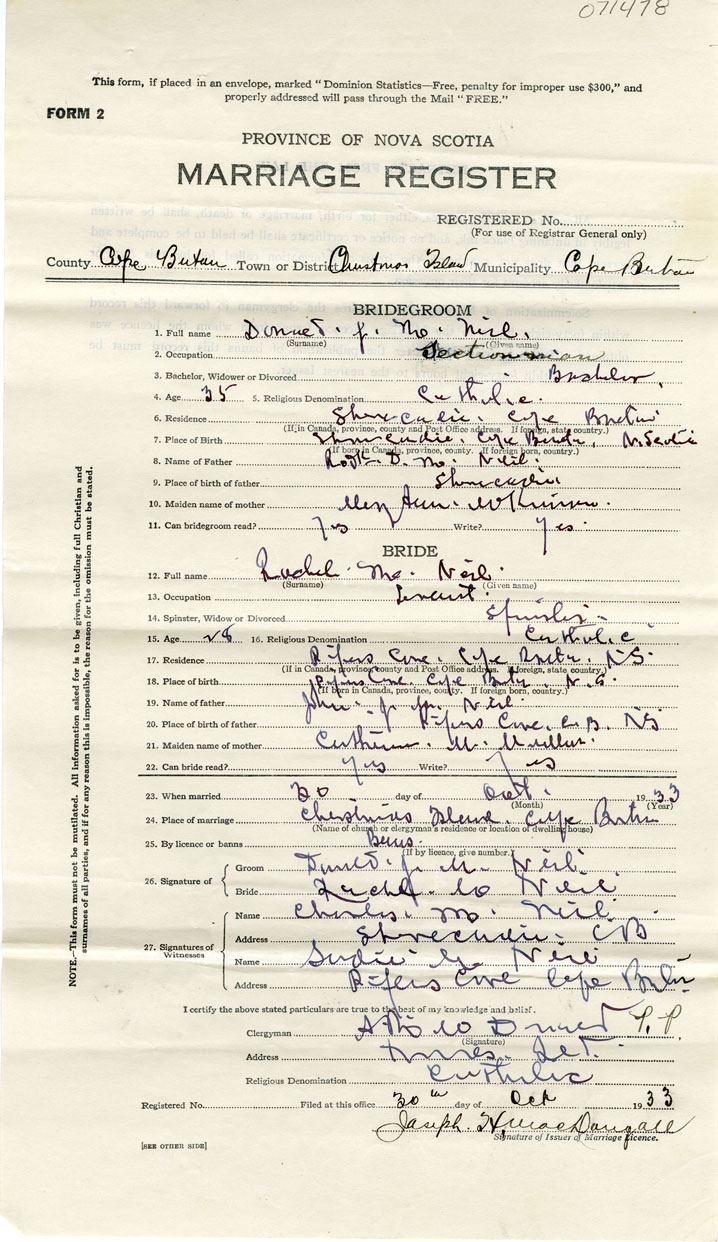 071478
This form, if placed in an envelope, marked "Dominion Statistics—Free, penalty for improper use $300," and
properly addressed will pass through the Mail "FREE."
FORM 2
PROVINCE OF NOVA SCOTIA
MARRIAGE REGISTER
REGISTERED No.
(For use of Registrar General only)
County Cape Breton Town or District Christmas Island Municipality Cape Breton
BRIDEGROOM
1. Full name Donald J. Mc Neil.
(Surname) (Given name)
2. Occupation Sectionman
3. Bachelor, Widower or Divorced Bachelor
4. Age 35 5. Religious Denomination Catholic.
6. Residence Shenacadie. Cape Breton
(If in Canada, province, county and Post Office address. If foreign, state country.)
7. Place of Birth Shenacadie. Cape Breton, N. Scotia
(If born in Canada, province, county. If foreign born, country.)
8. Name of Father D. Mc. Neil.
9. Place of birth of father Shenacadie
10. Maiden name of mother Mary Ann. McKinnon.
11. Can bridegroom read? Yes Write? Yes.
BRIDE
12. Full name Rachel Mc. Neil.
(Surname) (Given name)
13. Occupation Servant.
14. Spinster, Widow or Divorced Spinster
15. Age 28 16. Religious Denomination Catholic
17. Residence Pipers Cove. Cape Breton. N.S.
(If in Canada, province, county and Post Office address. If foreign, state country.)
18. Place of birth Pipers Cove. Cape Breton. N.S.
(If born in Canada, province, county. If foreign born, country.)
19. Name of father John. J. Mc. Neil.
20. Place of birth of father Pipers Cove. C.B. NS
21. Maiden name of mother Catherine.
22. Can bride read? Yes Write? Yes
23. When married 30 day of Oct. 1933
(Month) (Year)
24. Place of marriage Christmas Island. Cape Breton
(Name of church or clergyman's residence or location of dwelling house)
25. By licence or banns Banns.
(If by licence, give number.)
26. Signature of
Groom Donald. J. Mc Neil.
Bride Rachel Mc Neil
27. Signatures of Witnesses
Name Charles. Mc. Neil.
Address Shenacadie. CB
Name Mc Neil
Address Pipers Cove Cape Breton
I certify the above stated particulars are true to the best of my knowledge and belief.
Clergyman P.P.
(Signature)
Address
Religious Denomination Catholic
Registered No. Filed at this office 30th day of Oct 1933
Joseph. H. MacDougall
Signature of Issuer of Marriage Licence.
[SEE OTHER SIDE]
NOTE.—This form must not be mutilated. All information asked for is to be given, including full Christian and
surnames of all parties, and if for any reason this is impossible, the reason for the omission must be stated.